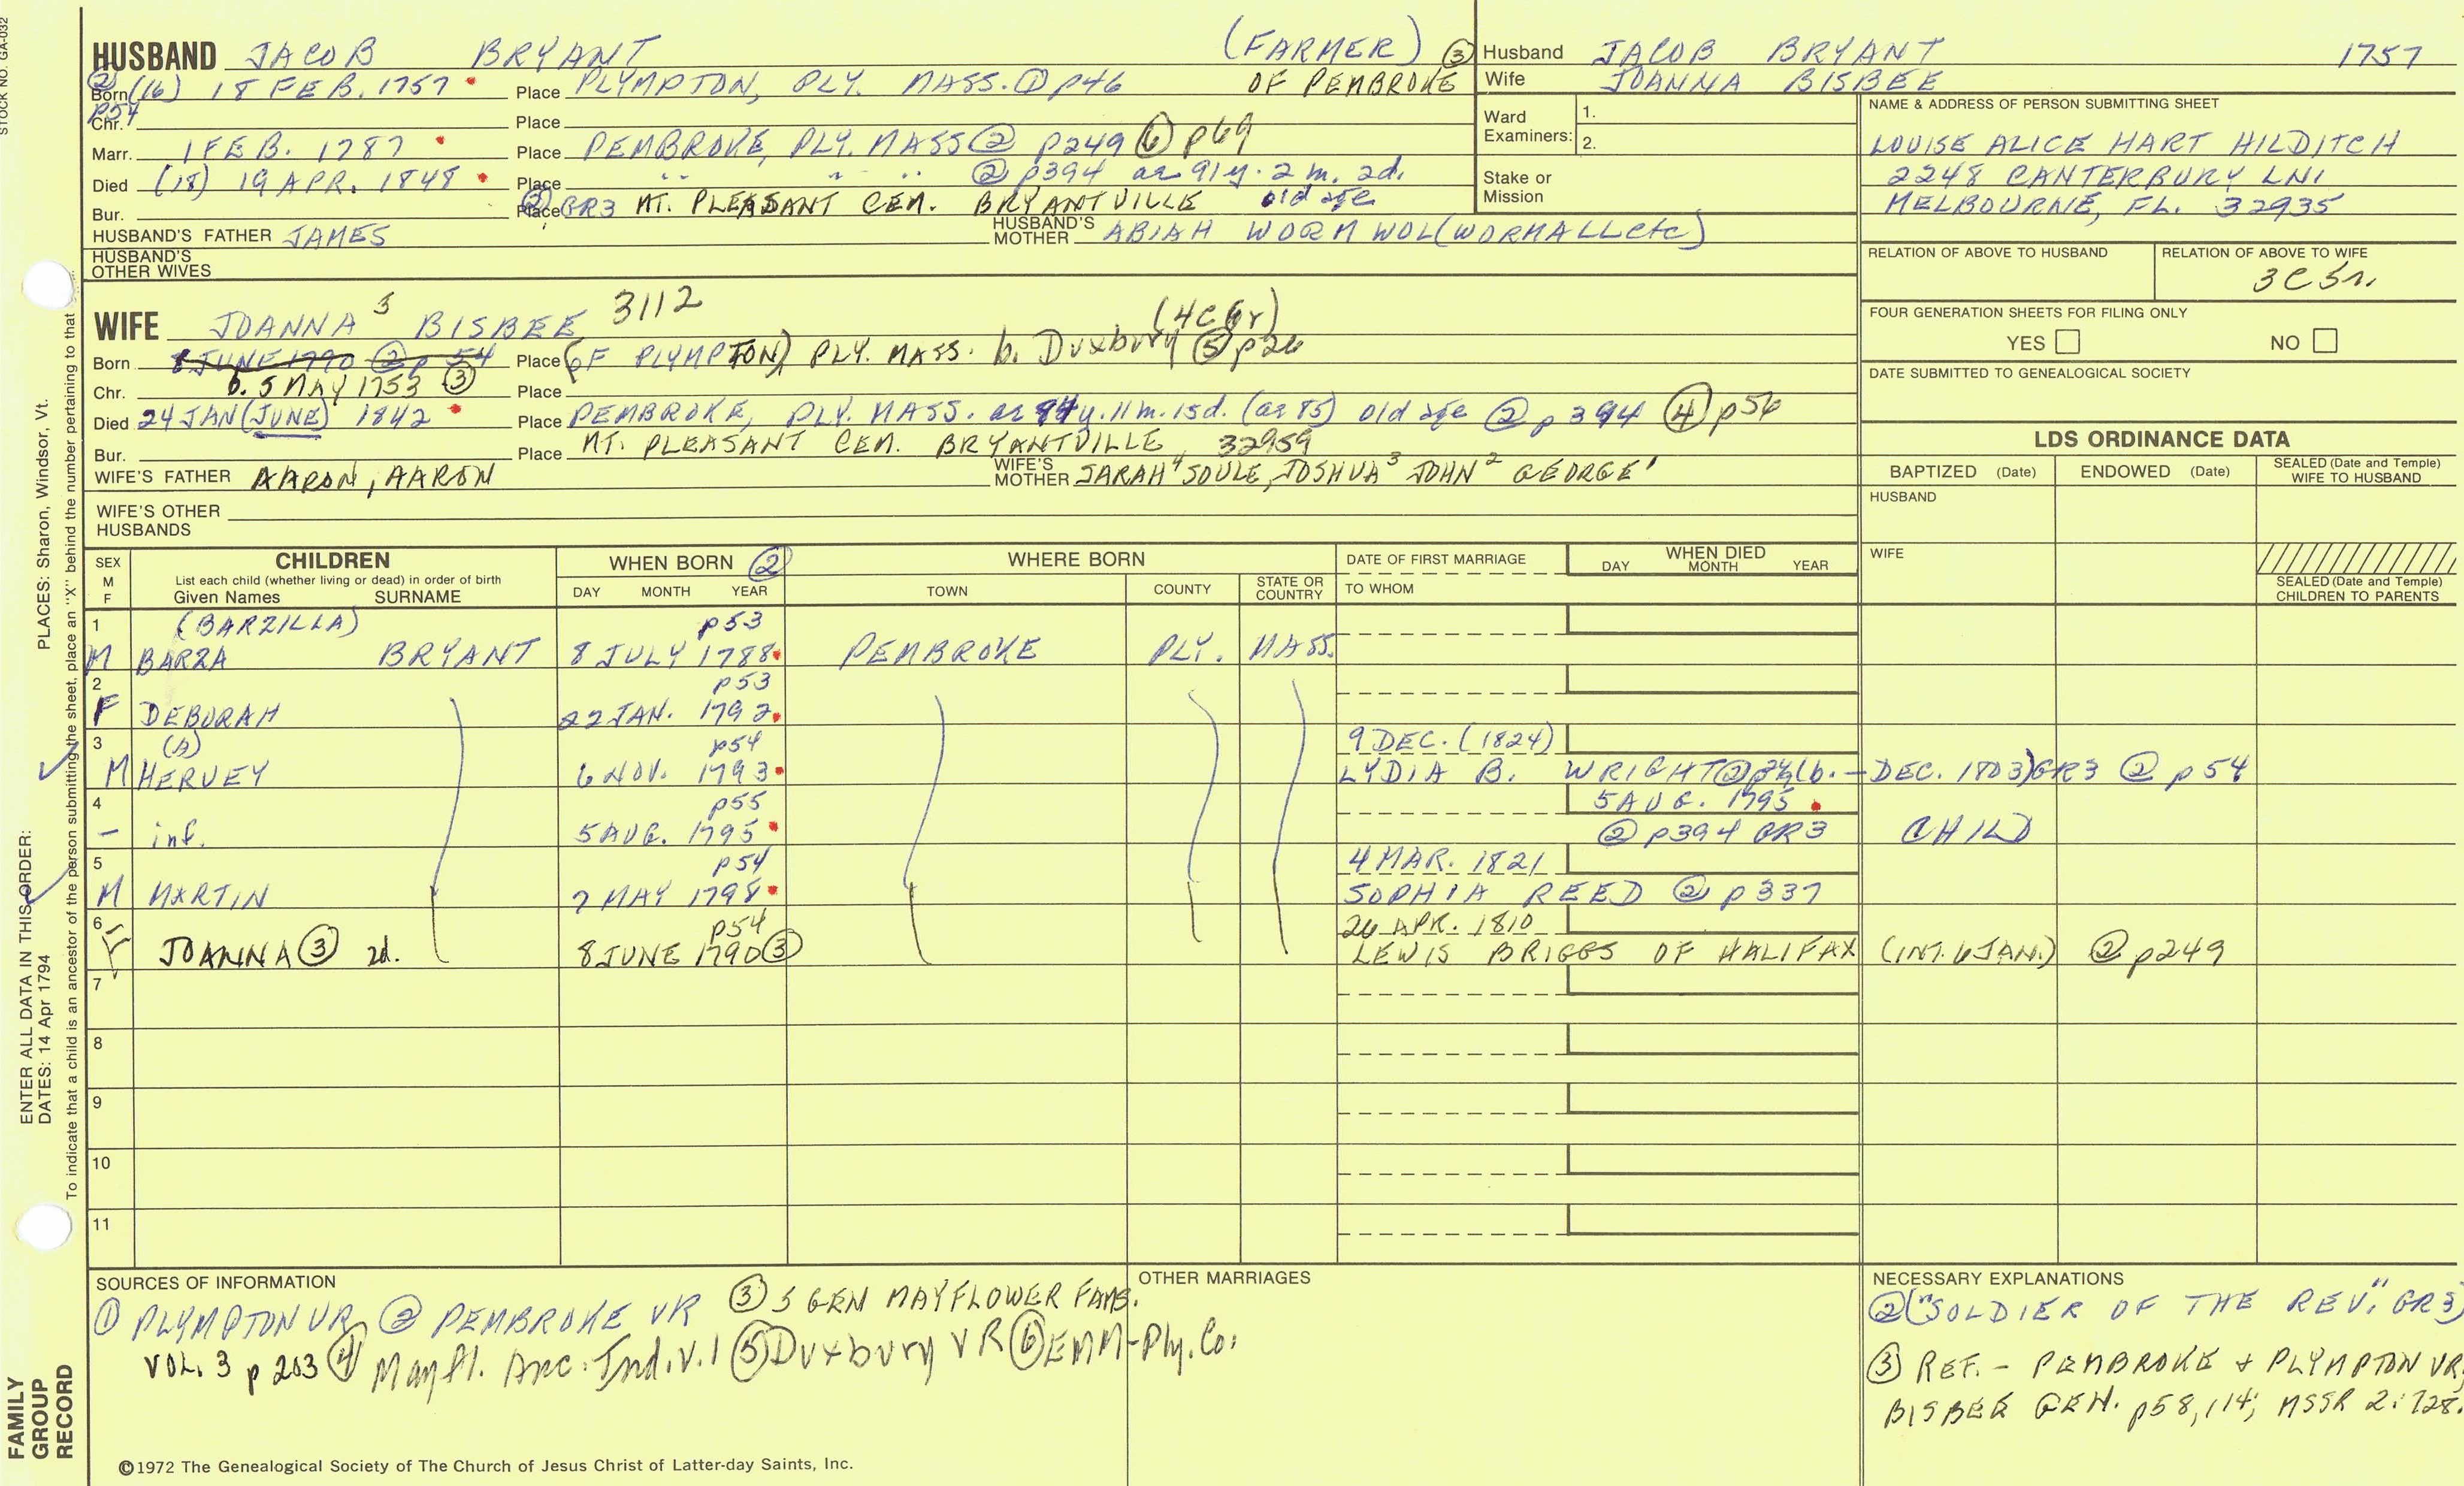 STOCK NO. GA-032
HUSBAND JACOB BRYANT (FARMER) ③
② Born (16) 18 FEB. 1757 Place PLYMPTON, PLY. MASS. ① p46 OF PEMBROKE
p54
Chr. Place
Marr. 1 FEB. 1787 Place PEMBROKE, PLY. MASS ② p249 ⑥ p69
Died (18) 19 APR. 1848 Place " " " ② p394 ae 91y. 2 m. 2d.
Bur. Place ② GR3 MT. PLEASANT CEM. BRYANTVILLE old age
HUSBAND'S FATHER JAMES HUSBAND'S MOTHER ABIAH WORMWOL (WORMALL etc)
HUSBAND'S OTHER WIVES
Husband JACOB BRYANT 1757
Wife JOANNA BISBEE
Ward Examiners: 1.
2.
Stake or Mission
NAME & ADDRESS OF PERSON SUBMITTING SHEET
LOUISE ALICE HART HILDITCH
2248 CANTERBURY LN
MELBOURNE, FL. 32935
RELATION OF ABOVE TO HUSBAND RELATION OF ABOVE TO WIFE
3C5r.
FOUR GENERATION SHEETS FOR FILING ONLY
YES NO
DATE SUBMITTED TO GENEALOGICAL SOCIETY
WIFE JOANNA 5 BISBEE 3112 (4C6r)
Born 8 JUNE 1790 ② p 54 Place (OF PLYMPTON) PLY. MASS. b. Duxbury ⑤ p26
Chr. b. 5 MAY 1753 ③ Place
Died 24 JAN (JUNE) 1842 Place PEMBROKE, PLY. MASS. ae 84y. 11m. 15d. (ae 85) old age ② p 394 ④ p56
Bur. Place MT. PLEASANT CEM. BRYANTVILLE 32959
WIFE'S FATHER AARON, AARON WIFE'S MOTHER SARAH⁴ SOULE, JOSHUA³ JOHN² GEORGE¹
WIFE'S OTHER HUSBANDS
LDS ORDINANCE DATA
BAPTIZED (Date) ENDOWED (Date) SEALED (Date and Temple) WIFE TO HUSBAND
HUSBAND
WIFE
SEALED (Date and Temple) CHILDREN TO PARENTS
SEX M F CHILDREN List each child (whether living or dead) in order of birth Given Names SURNAME
WHEN BORN ② DAY MONTH YEAR
WHERE BORN TOWN COUNTY STATE OR COUNTRY
DATE OF FIRST MARRIAGE TO WHOM
WHEN DIED DAY MONTH YEAR
1 (BARZILLA) p53
M BARZA BRYANT 8 JULY 1788 PEMBROKE PLY. MASS.
2 p53
F DEBORAH 22 JAN. 1792
3 (A) p54 9 DEC. (1824)
M HERVEY 6 NOV. 1793 LYDIA B. WRIGHT ② (b. — DEC. 1803) GR3 ② p54
4 p55 5 AUG. 1795
– inf. 5 AUG. 1795 ② p394 GR3 CHILD
5 p54 4 MAR. 1821
M MARTIN 7 MAY 1798 SOPHIA REED ② p 337
6 p54 26 APR. 1810
F JOANNA ③ 2d. 8 JUNE 1790 ③ LEWIS BRIGGS OF HALIFAX (INT. 6 JAN.) ② p249
7
8
9
10
11
SOURCES OF INFORMATION
① PLYMPTON VR ② PEMBROKE VR ③ 5 GEN MAYFLOWER FAMS.
VOL. 3 p 203 ④ Mayfl. Anc. Ind. v. 1 ⑤ Duxbury VR ⑥ EMM-Ply. Co.
OTHER MARRIAGES
NECESSARY EXPLANATIONS
② ("SOLDIER OF THE REV." GR3)
③ REF. - PEMBROKE + PLYMPTON VR;
BISBEE GEN. p58, 114; MSSR 2:728.
©1972 The Genealogical Society of The Church of Jesus Christ of Latter-day Saints, Inc.
FAMILY GROUP RECORD
ENTER ALL DATA IN THIS ORDER:
DATES: 14 Apr 1794
PLACES: Sharon, Windsor, Vt.
To indicate that a child is an ancestor of the person submitting the sheet, place an "X" behind the number pertaining to that